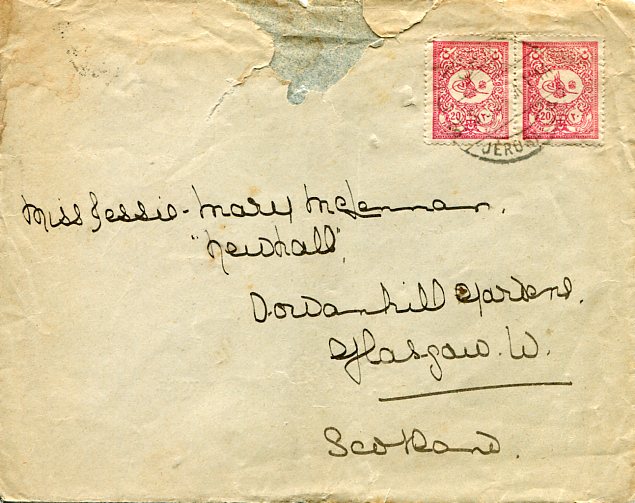 20 ٢٠ 20 ٢٠
JERUS
Miss Jessie-Mary McLennan.
"Newhall",
Dowanhill Gardens.
Glasgow. W.
Scotland.